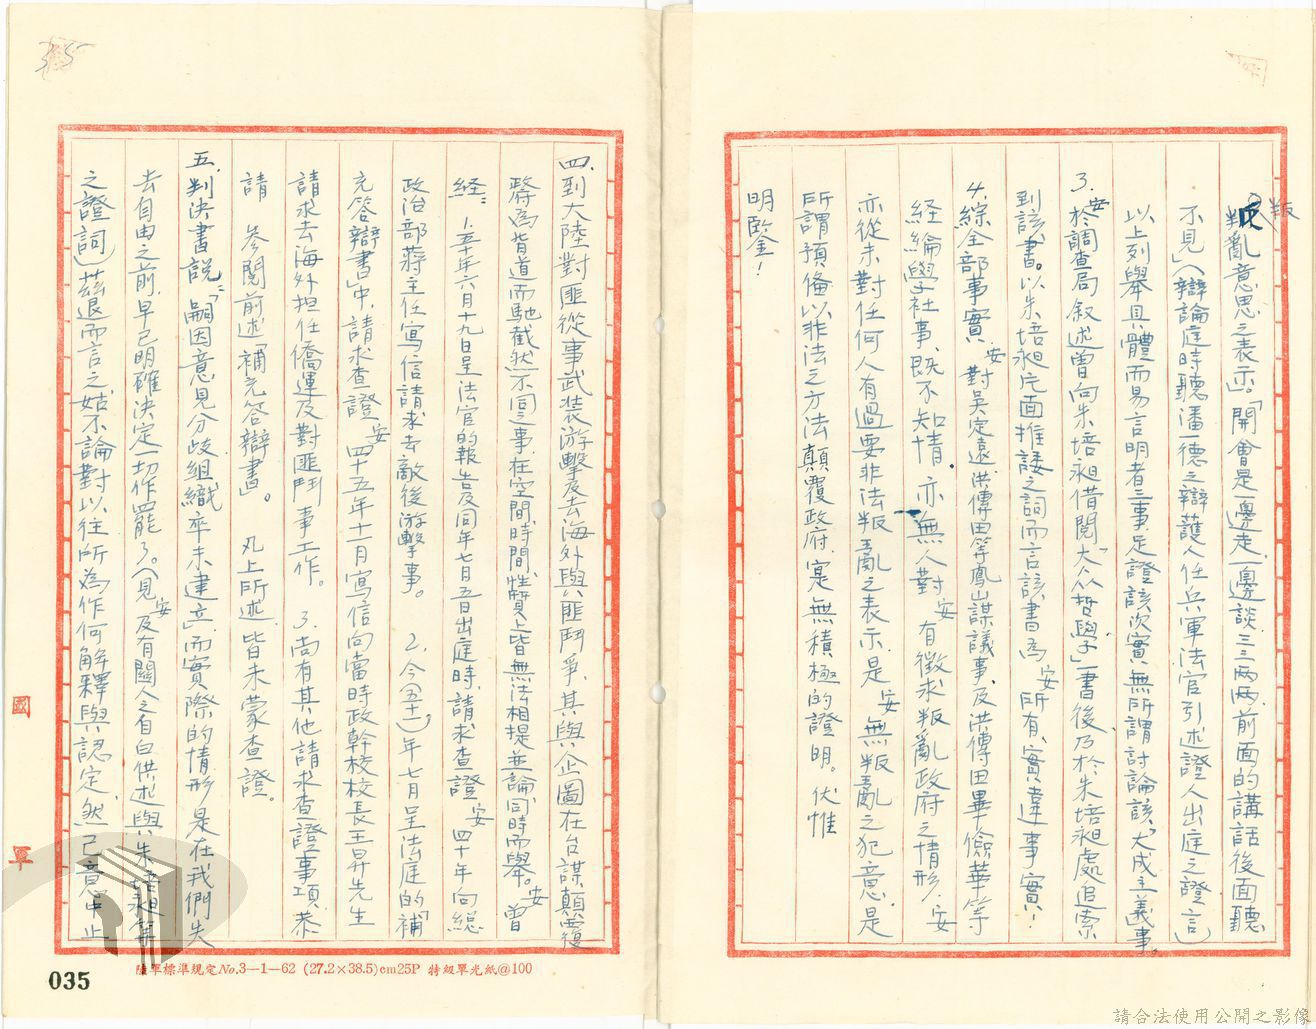 叛亂意思之表示。「開會是一邊走、一邊談、三三兩兩、前面的講話後面聽
叛
不見」(辯論庭時聽潘一德之辯護人任兵軍法官引述證人出庭之證言)
以上列舉具體而易言明者三事、足證該次實無所謂討論該「大成主義事。
3.於調查局叙述曾向朱培昶借閱「大人哲學」一書後、乃於朱培昶處追索
安
到該書。以朱培昶片面推諉之詞而言該書為安所有、實違事實!
4.綜全部事實、安對吳定遠、洪傳田等鳳山謀議事、及洪傳田畢儉華等
経綸學社事、既不知情、亦無人對安有徵求叛亂政府之情形、安
亦從未對任何人有過要非法叛亂之表示、是安無叛亂之犯意、是
所謂預備以非法之方法顛覆政府、寔無積極的證明。伏惟
明鑒!
四、到大陸對匪從事武装游擊及去海外與匪鬥爭、其與企圖在台謀顛覆
政府為背道而馳截然不同之事、在空間、時間、性質上皆無法相提並論、同時而舉。安曾
経:1.五十年六月十九日呈法官的報告及同年七月五日出庭時、請求查證安四十年向総
政治部蔣主任寫信請求去敵後游擊事。2.今(五十一)年七月呈法庭的「補
充答辯書」中、請求查證安四十五年十一月寫信向當時政幹校校長王昇先生
請求去海外担任僑運及對匪鬥事工作。3.尚有其他請求查證事項、恭
請 參閱前述「補充答辯書」。 凡上所述、皆未蒙查證。
五、判決書説:「嗣因意見分歧組織卒未建立」、而實際的情形是在我們失
去自由之前、早已明確決定一切作罷了。(見安及有關人之自白供述與朱培昶等
之證詞)茲退而言之、姑不論對以往所為作何解釋與認定、然已意中止
國軍
陸軍標準規定No.3—1—62 (27.2×38.5)cm25P 特級單光紙@100
035
35
請合法使用公開之影像